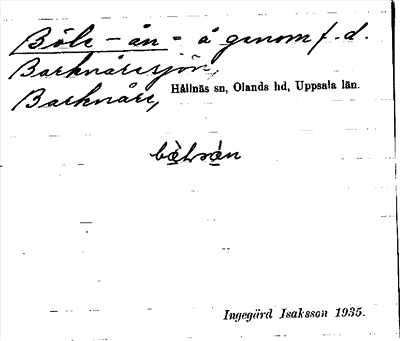 Böls-ån - å genom f.d.
Barknåresjön,
Barknåre, Hållnäs sn, Olands hd, Uppsala län.
Ingegärd Isaksson 1935.